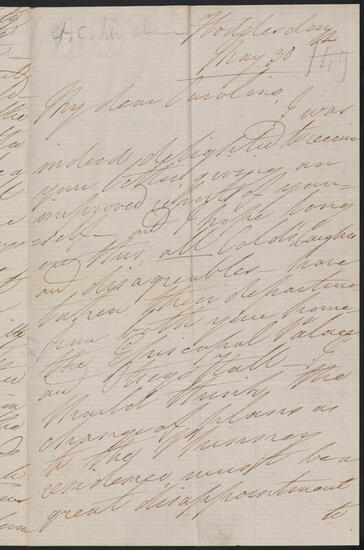 Hoddesdon
May 30th
My dear Caroline,
I was
indeed delighted to receive
your letter giving an
improved report of your
self - and I hope long
ere this, all Colds, Coughs
and disagreeables - have
taken their departure
from both your home
the Episcopal Palace
and Hall - I
should think the
change of plans as
to the
residence must be a
great disappointment
to